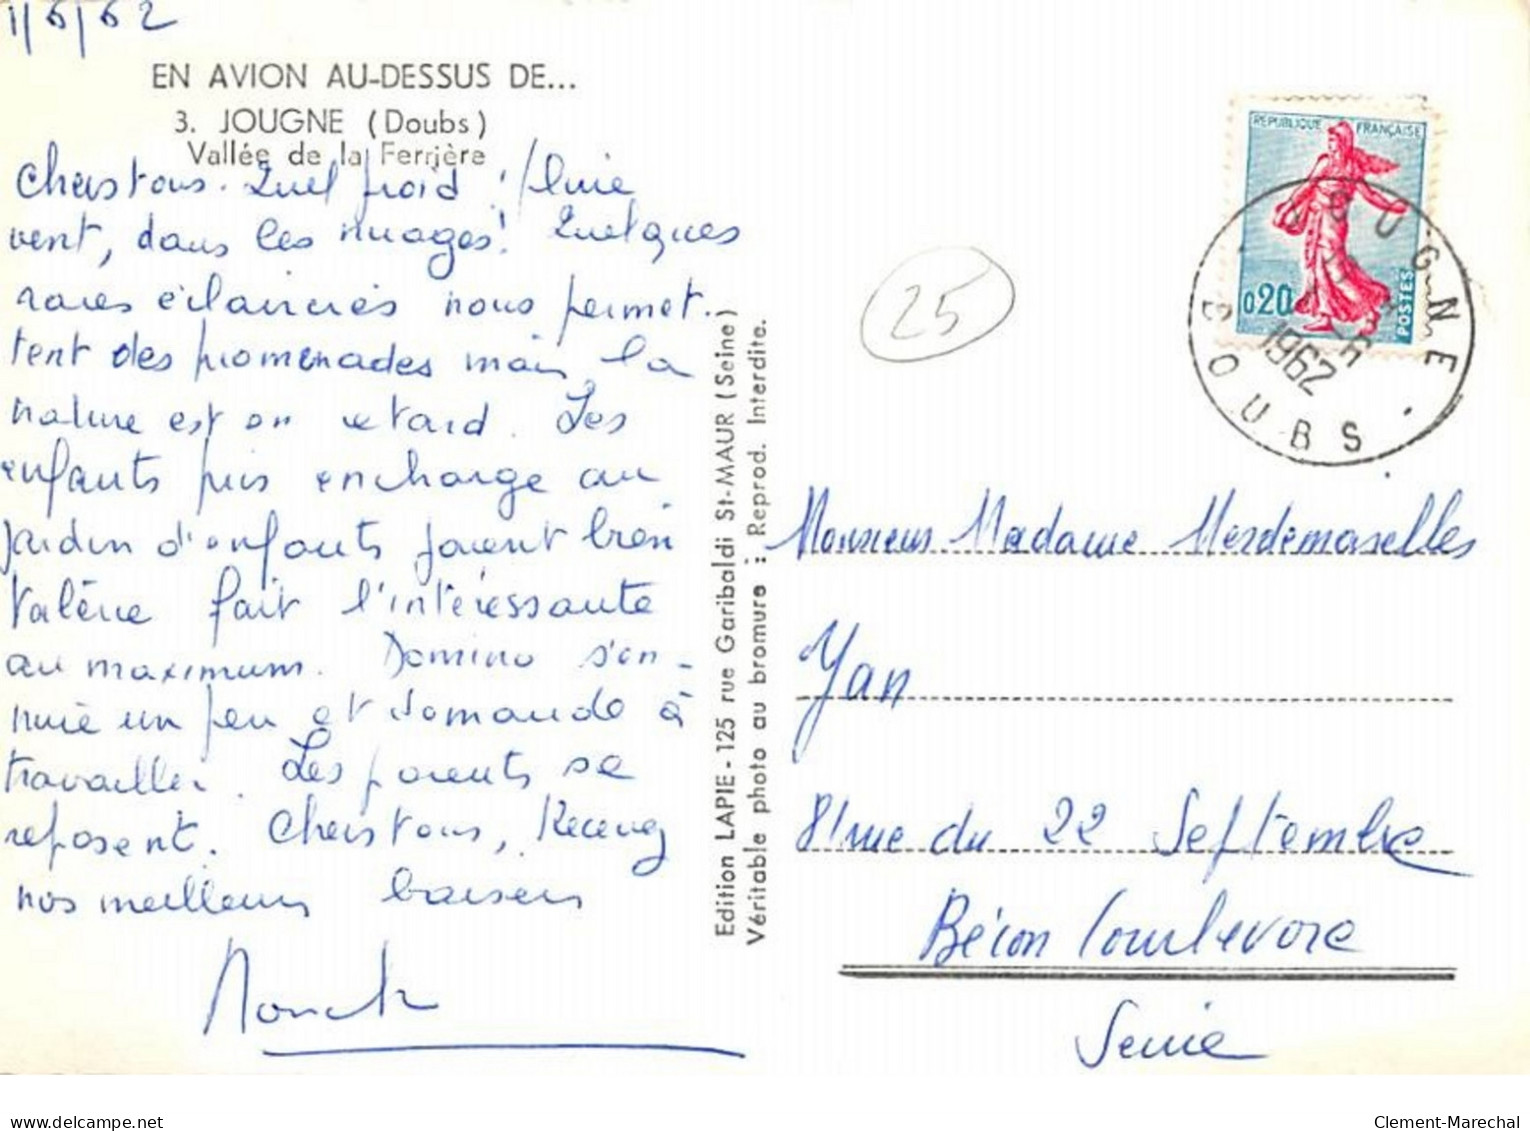 1/6/62
EN AVION AU-DESSUS DE...
3. JOUGNE (Doubs)
Vallée de la Ferrière
Chers tous. Quel froid ! Pluie
vent, dans les nuages! Quelques
rares éclaircies nous permet-
tent des promenades mais la
nature est en retard. Les
enfants pris en charge au
jardin d'enfants jouent bien
Valérie fait l'intéressante
au maximum. Domino s'en-
nuie un peu et demande à
travailler. Les parents se
reposent. Chers tous, Recevez
nos meilleurs baisers
Edition LAPIE - 125 rue Garibaldi St-MAUR (Seine)
Véritable photo au bromure : Reprod. Interdite.
25
REPUBLIQUE FRANÇAISE
0,20
POSTES
JOUGNE
1962
DOUBS
Monsieur Madame Mesdemoiselles
Yan
81 rue du 22 Septembre
Bécon Courbevoie
Seine
Clement-Marechal
delcampe.net